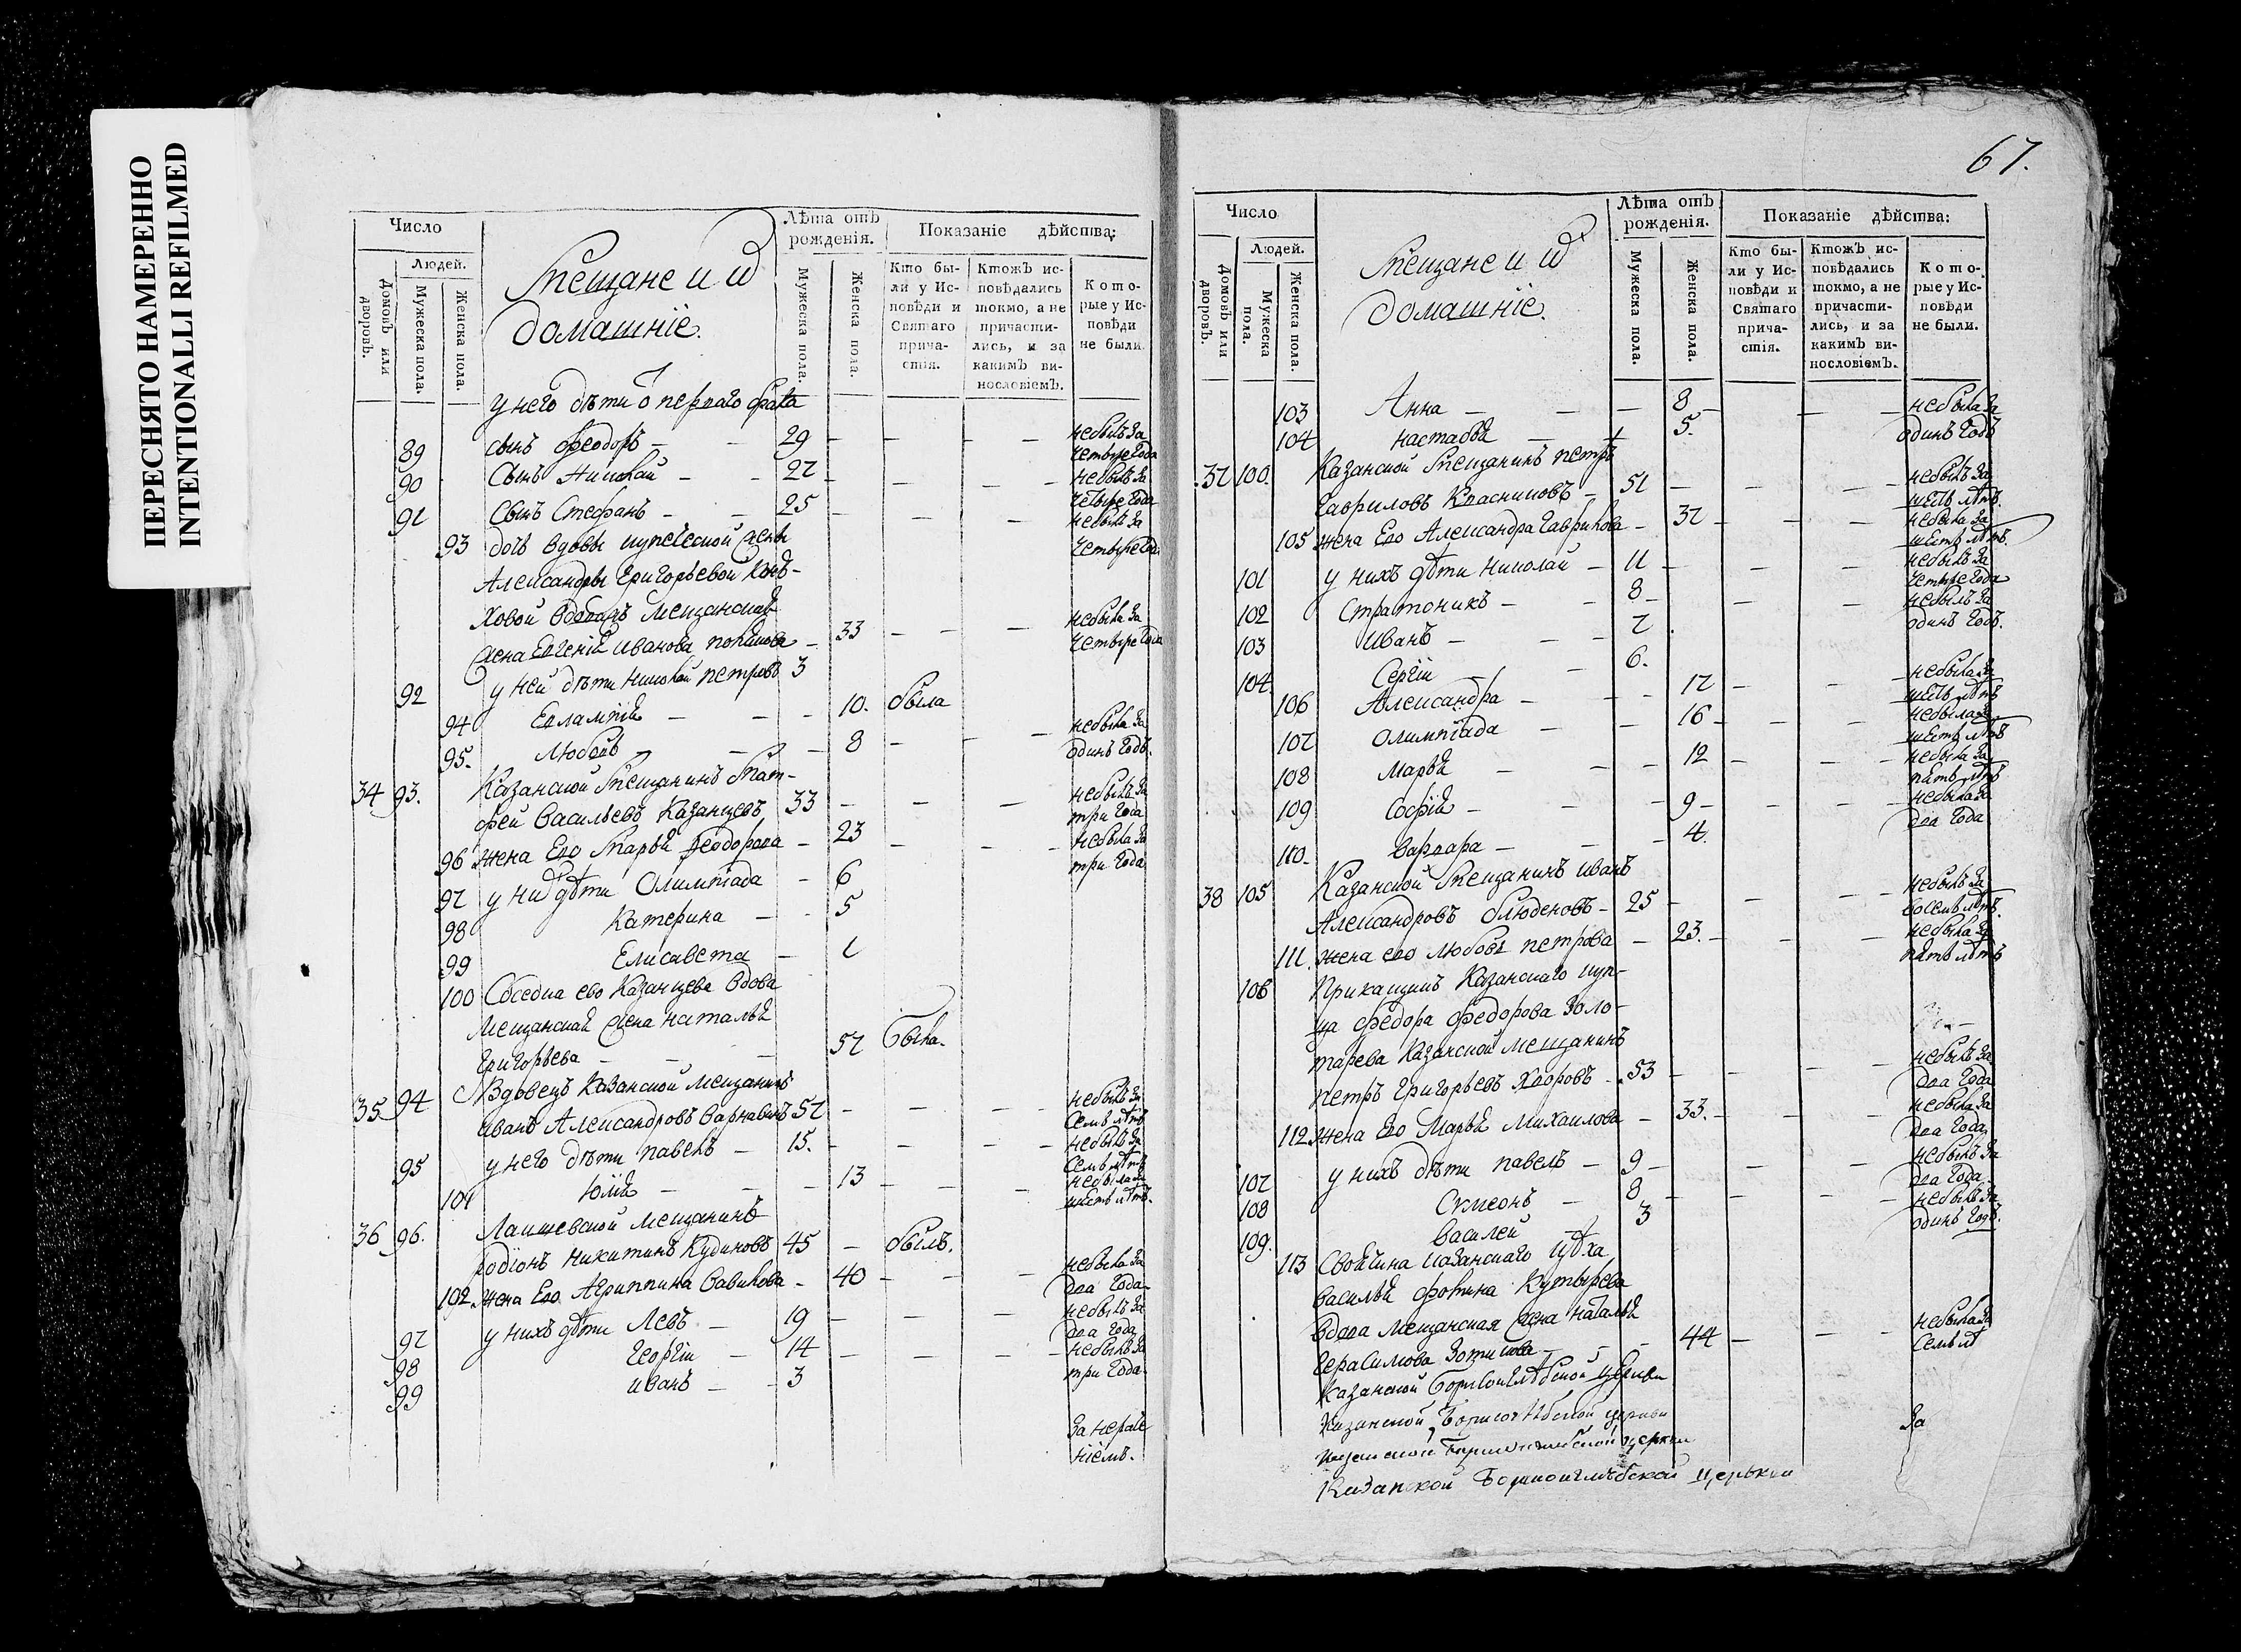 ПЕРЕСНЯТО НАМЕРЕННО
INTENTIONALLI REFILMED
Число
Людей.
Домовъ или дворовъ.
Мужеска пола.
Женска пола.
Мещане и их
домашніе.
Лѣта отъ рожденія.
Мужеска пола.
Женска пола.
Показаніе дѣйства:
Кто были у Исповѣди и Святаго причастія.
Ктожъ исповѣдались токмо, а не причастились, и за какимъ винословіемъ.
Которые у Исповѣди не были.
у него дѣти о перваго брака
89 сынъ Феодоръ – – 29 – – – – небылъ за четыре года
90 Сынъ Николай – – 27 – – – – небылъ за четыре года
91 Сынъ Стефанъ – – 25 – – – небылъ за четыре года
93 дочь вдовы купеческой жены
Александры Григорьевой
ховой вдова мещанская
жена Евгенія Иванова – 33 – – – небыла за четыре года
92 у ней дѣти Николай петровъ 3
94 Евлампія – – – 10. была
95. Любовь – – – 8 – – – небыла за одинъ годъ.
34 93. Казанской Мещанинъ Мат-
фей Васильевъ Казанцевъ 33 – – – небылъ за три года
96 жена Его Марья Феодорова – 23 – – – небыла за три года
97 у них дѣти Олимпіада – 6
98 Катерина – – 5
99 Елисавета – 1
100 Соседка ево Казанцева вдова
Мещанская жена наталья
Григорьева – – – 57 была.
35 94 Вдовецъ Казанской мещанинъ
иванъ Александровъ 57 – – – – небылъ за семь лѣтъ
95 у него дѣти павелъ – 15. – – – – небылъ за семь лѣтъ
101 Юлія – – – 13 – – – небыла за шесть лѣтъ.
36 96. Лаишевской мещанинъ
родіонъ никитинъ Кудиновъ 45 – былъ.
102. жена Ево Агриппина Савилова – 40 – – – небыла за два года
97 у нихъ дѣти Левъ – 19 – – – небылъ за два года
98 Георгіи – 14 – – – – небылъ за три года.
99 иванъ – – 3
за нераде
ніемъ.
67.
Число
Людей.
Домовъ или дворовъ.
Мужеска пола.
Женска пола.
Мещане и их
домашніе.
Лѣта отъ рожденія.
Мужеска пола.
Женска пола.
Показаніе дѣйства:
Кто были у Исповѣди и Святаго причастія.
Ктожъ исповѣдались токмо, а не причастились, и за какимъ винословіемъ.
Которые у Исповѣди не были.
103 Анна – – – 8 – – – небыла за одинъ годъ
104 настасья – – 5.
37 100. Казанской Мещанинъ петръ
Гавриловъ Красиковъ – 51 – – – – небылъ за шесть лѣтъ.
105 жена Его Александра Гаврилова – 37 – – – небыла за шесть лѣтъ.
101 у нихъ дѣти николай – 11 – – – небылъ за четыре года
102 Стратоникъ – – 8 – – – небылъ за одинъ годъ.
103 Иванъ – – – 7
104 Сергіи – – 6.
106 Александра – – – 17 – – – небыла за шесть лѣтъ
107 олимпіада – – 16 – – – небыла за шесть лѣтъ
108 Марья – – – 12 – – – небыла за пять лѣтъ
109 Софія – – – 9 – – – – небыла за два года
110. варвара – – – 4.
38 105 Казанской Мещанинъ иванъ
Александровъ Блюденовъ – 25 – – – – небылъ за восемь лѣтъ.
111. жена ево любовь петрова – 23. – – – небыла за пять лѣтъ
106 Прикащикъ Казанскаго куп-
ца федора федорова Золо-
тарева Казанской мещанинъ
петръ Григорьевъ Хворовъ – 53 – – – – небылъ за два года
112. жена Его Марья Михаилова – 33. – – – небыла за два года.
107 у нихъ дѣти павелъ – 9 – – – небылъ за два года
108 Симеонъ – 8 – – – – небылъ за одинъ годъ.
109. василей – 3
113 Своячина казанскаго цѣха
василья фотина Кутырева
вдова мещанская жена наталья
Герасимова – – 44 – – – небыла за семь лѣ
Казанской Борисоглѣбской церкви
Казанской Борисоглѣбской церкви
Казанской Борисоглѣбской церкви
Казанской Борисоглѣбской церькви
за